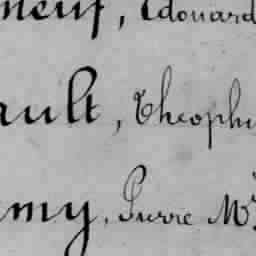 neuf, Edouard
ault, Theophi
my, Pierre M